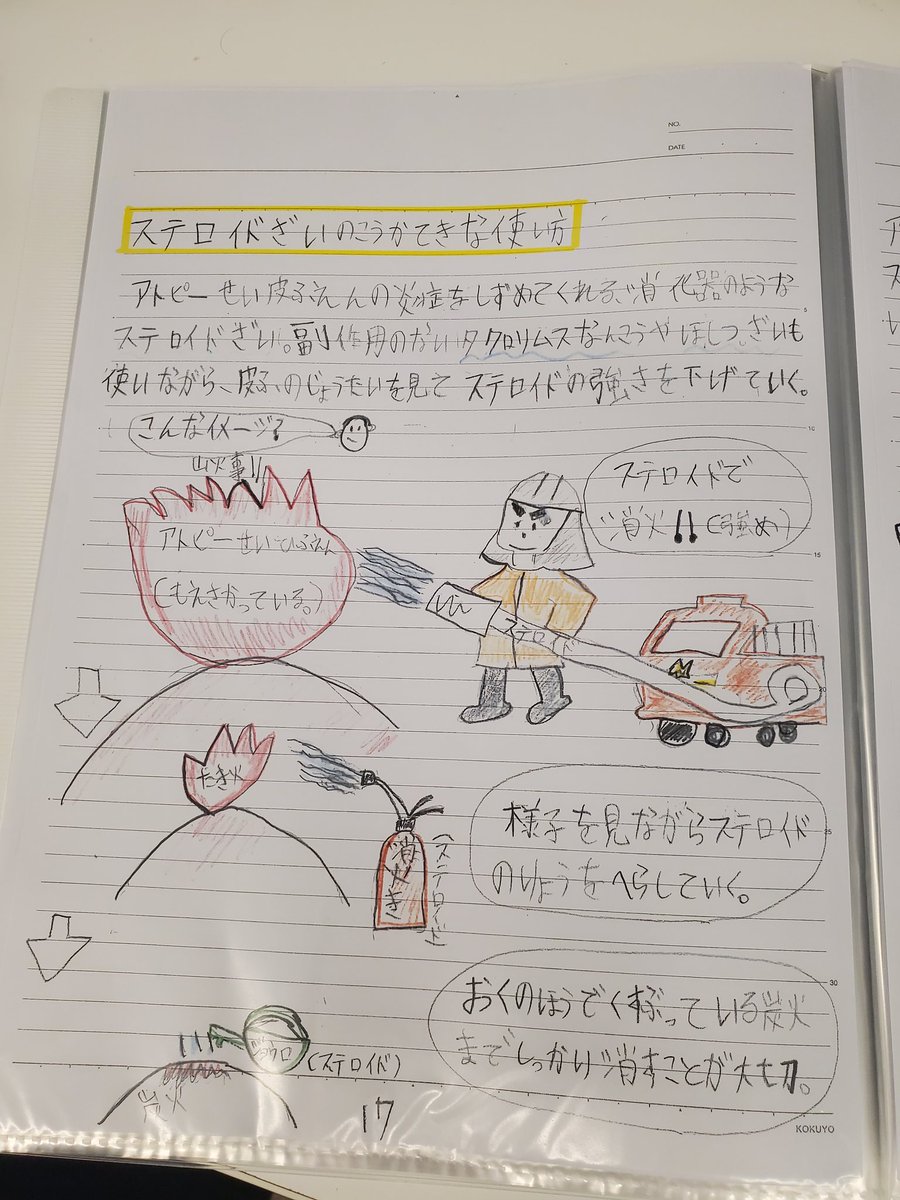 NO.
DATE
ステロイドざいのこうかてきな使い方
アトピーせい皮ふえんの炎症をしずめてくれる、消化器のような
ステロイドざい。副作用のないタクロリムスなんこうやほしつざいも
使いながら、皮ふのじょうたいを見てステロイドの強さを下げていく。
こんなイメージ?
山火事!!
アトピーせいひふえん
(もえさかっている。)
ステロイドで
消火!!(強め)
ステロイド
たき火
消火き
(ステロイド)
様子を見ながらステロイド
のりょうをへらしていく。
おくのほうでくすぶっている炭火
までしっかり消すことが大切。
ジョウロ
(ステロイド)
炭火
17
KOKUYO